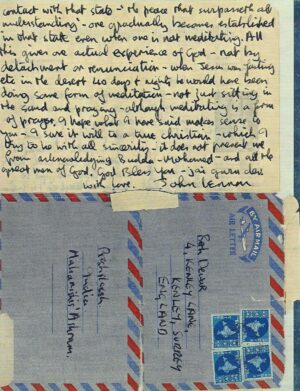 contact with that state - the peace that surpasses all
understanding - one gradually becomes established
in that state even when one is not meditating. All
this gives one actual experience of God - not by
detachment or renunciation - when Jesus was fasting
etc in the desert 40 days & nights he would have been
doing some form of meditation - not just sitting in
the sand and praying - although meditating is a form
of prayer. I hope what I have said makes sense to
you - I sure it will to a true Christian - which I
try to be with all sincerity - it does not prevent me
from acknowledging Budda - Mohamed - and all the
great men of God. God Bless you - jai guru dev
with love.
John Lennon
BY AIR MAIL
AIR LETTER
Beth Dewer
4, KENLEY LANE,
KENLEY, SURREY
ENGLAND
India
Maharishi's Ashram,